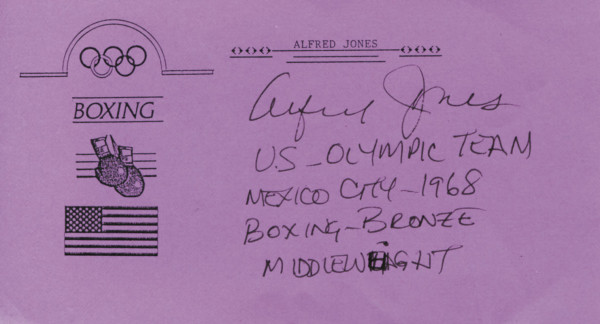 ALFRED JONES
BOXING
Alfred Jones
U.S - OLYMPIC TEAM
MEXICO CITY - 1968
BOXING - BRONZE
MIDDLEWEIGHT